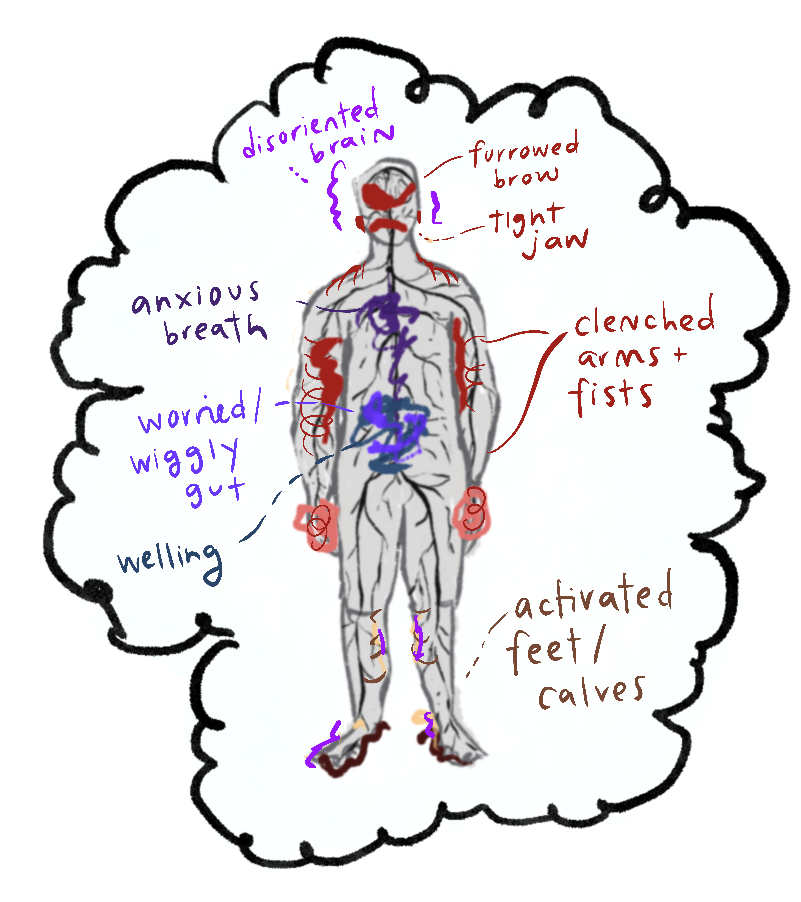 disoriented
brain
furrowed
brow
tight
jaw
anxious
breath
clenched
arms +
fists
worried/
wiggly
gut
welling
activated
feet/
calves